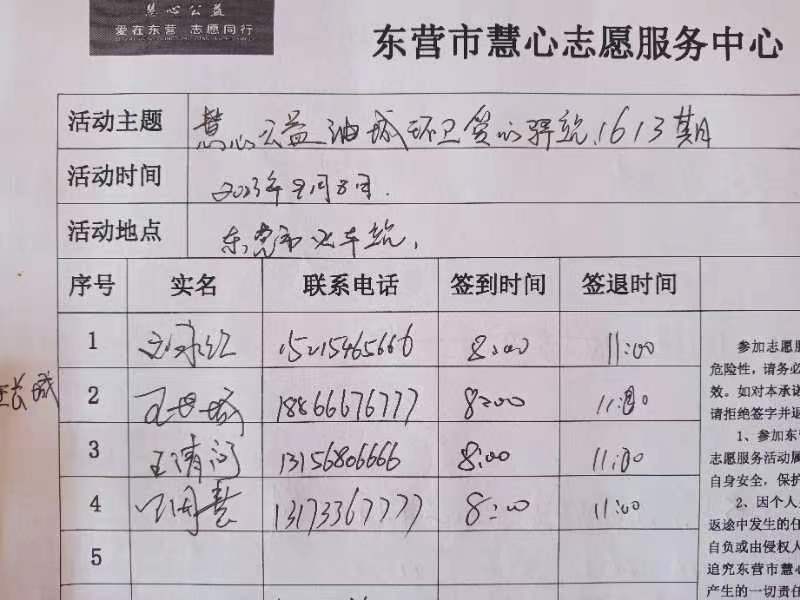 慧心公益
爱在东营 志愿同行
东营市慧心志愿服务中心
活动主题 慧心公益油城环卫爱心驿站1613期
活动时间 2023年2月8日.
活动地点 东营市火车站.
序号 实名 联系电话 签到时间 签退时间
1 15215465666 8:00 11:00
2 18866676777 8:00 11:00
3 王清河 13156806666 8:00 11:00
4 慧 13173367777 8:00 11:00
5
参加志愿服
危险性,请务必
效。如对本承诺
请拒绝签字并返
1、参加东营
志愿服务活动属
自身安全,保护
2、因个人
返途中发生的任
自负或由侵权人
追究东营市慧心
产生的一切责任
长城